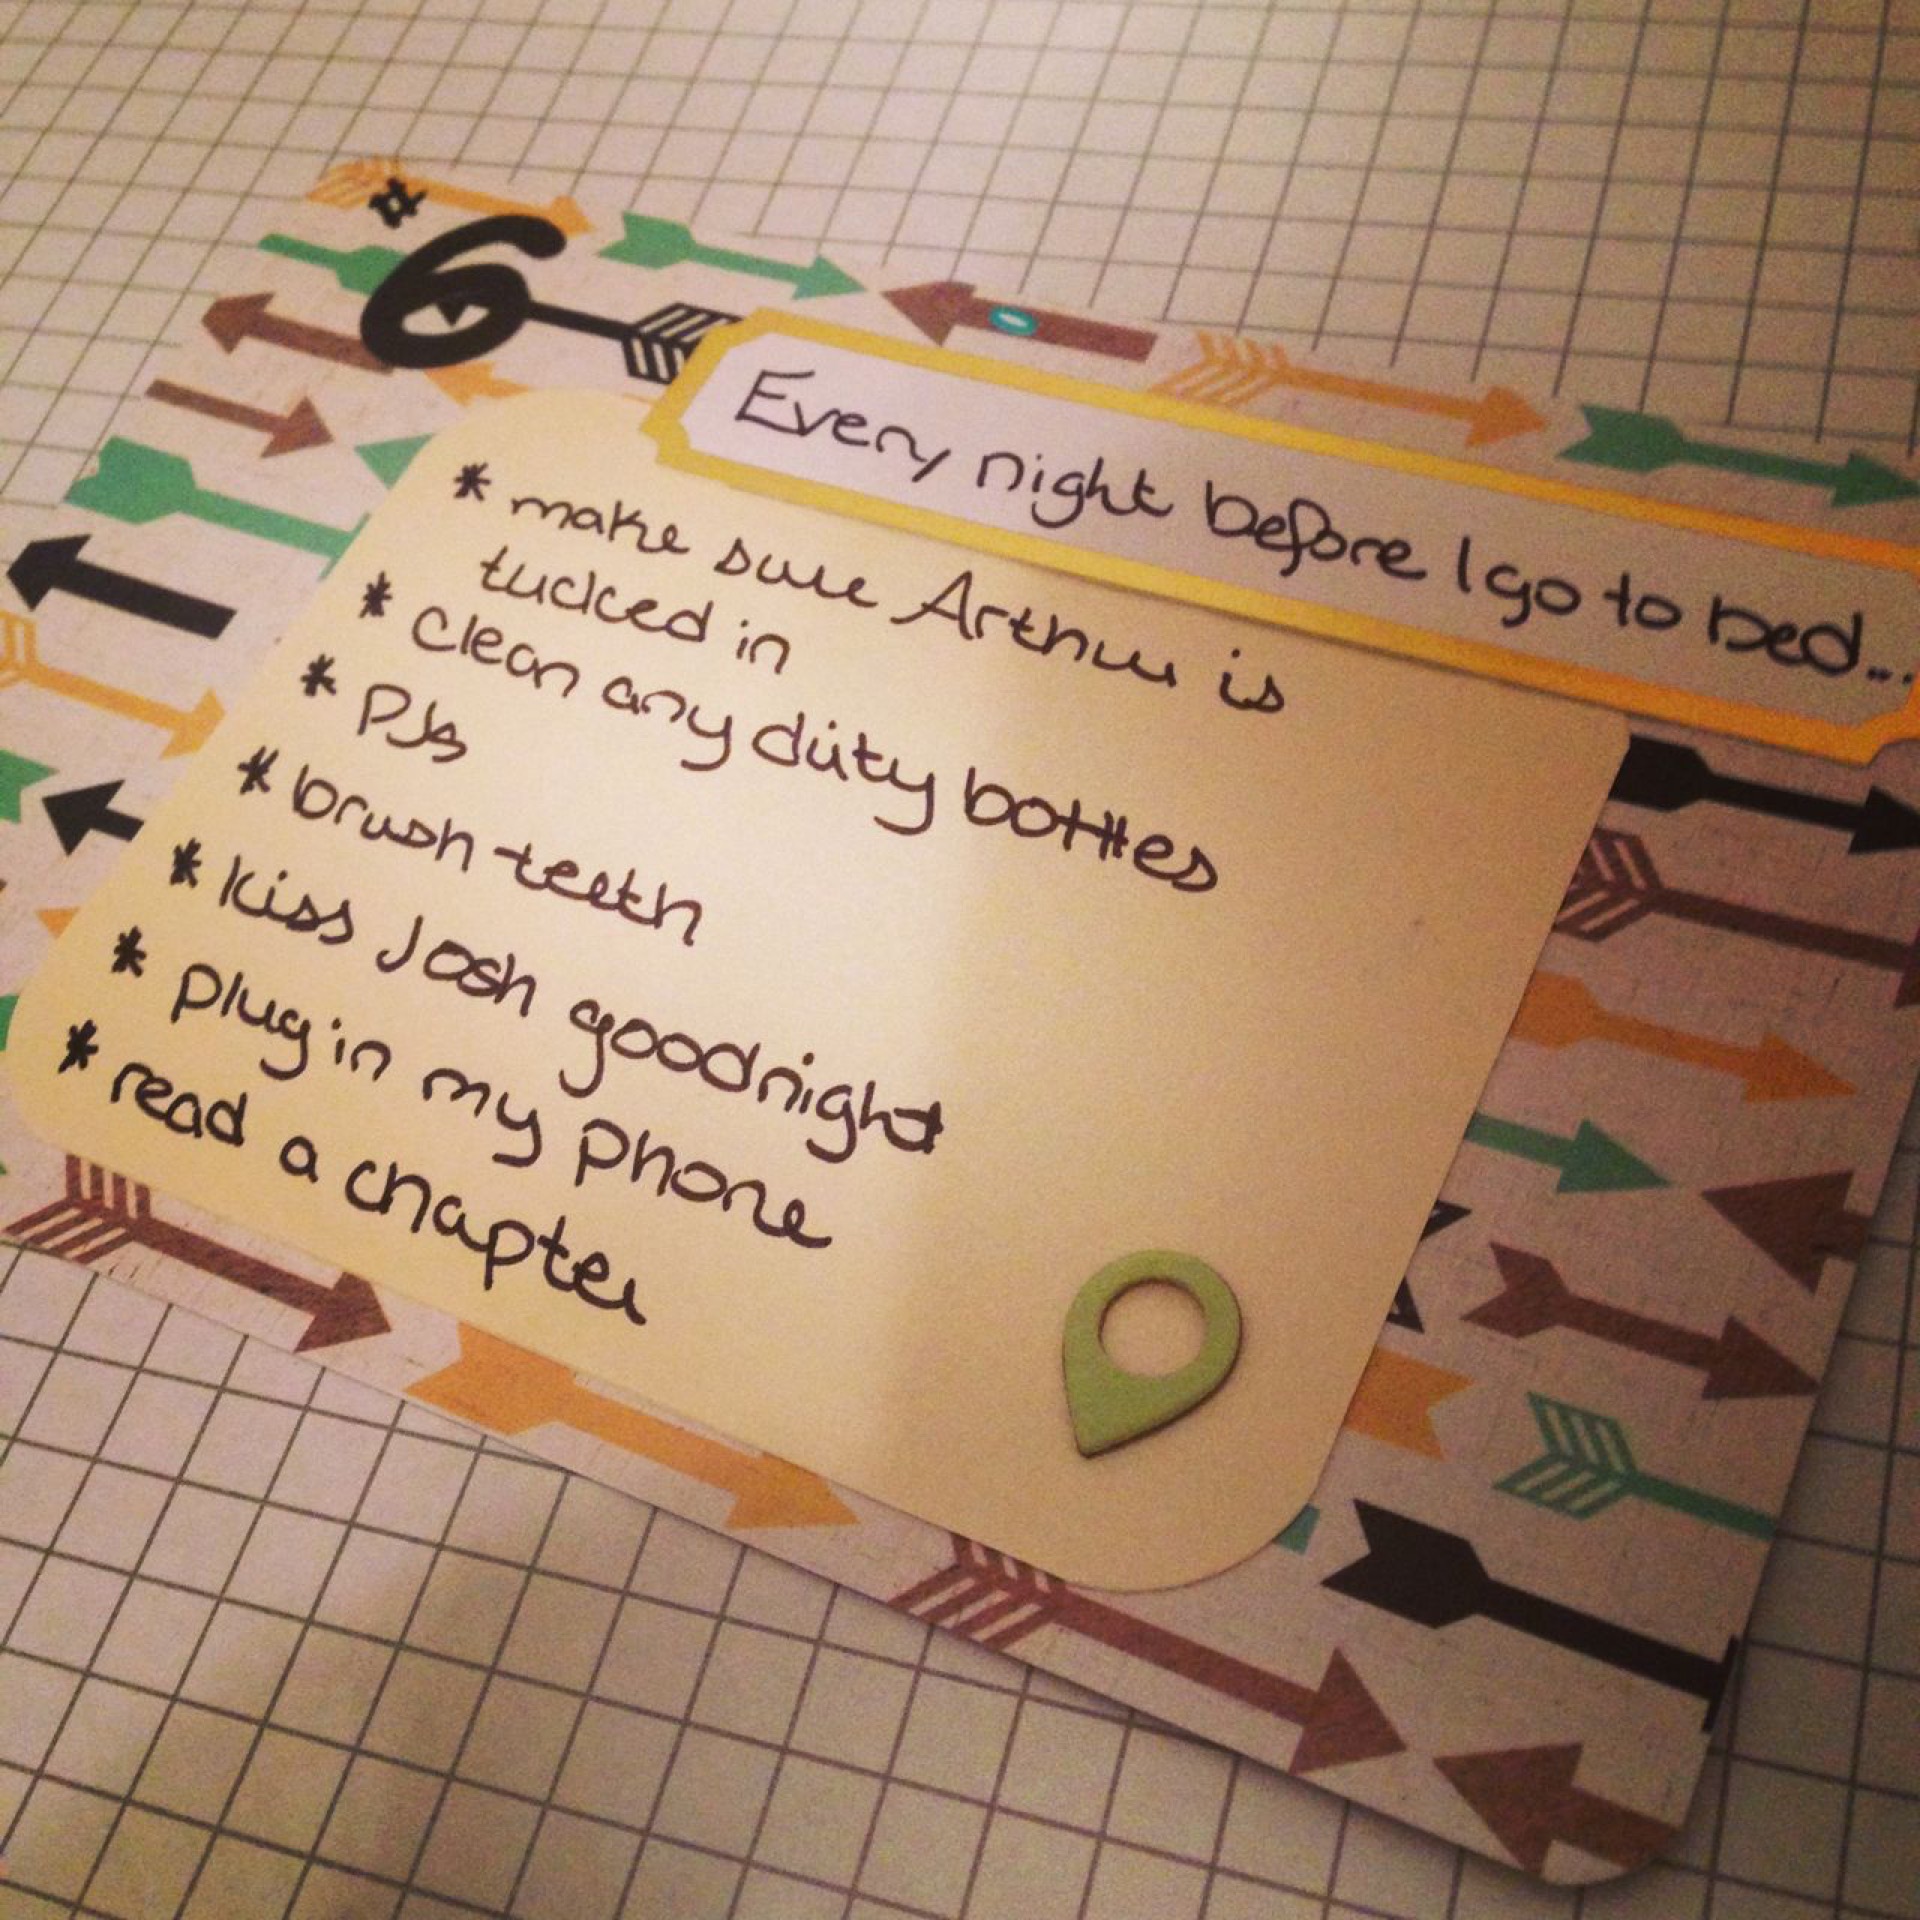 #6
Every night before I go to bed...
* make sure Arthur is
tucked in
* Clean any dirty bottles
* PJs
* brush teeth
* kiss Josh goodnight
* plug in my phone
* read a chapter